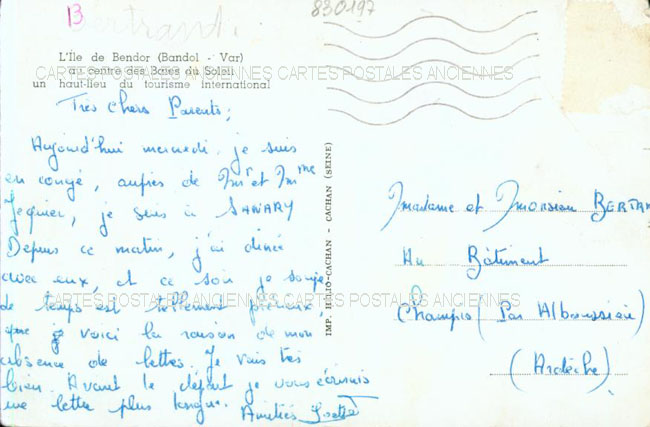 B
Bertrand
830197
L'Île de Bendor (Bandol - Var)
au centre des Baies du Soleil
un haut-lieu du tourisme international
CARTES POSTALES ANCIENNES CARTES POSTALES ANCIENNES
Très chers Parents,
Aujourd'hui mercredi je suis
en congé, auprès de Mr et Mme
Jequier, je suis à SANARY
Depuis ce matin, j'ai dîné
avec eux, et ce soir je soupe,
le temps est tellement précieux,
que voici la raison de mon
absence de lettres. Je vais très
bien. Avant le départ je vous écrirais
une lettre plus longue. Amitiés
CARTES POSTALES ANCIENNES CARTES POSTALES ANCIENNES
IMP. HÉLIO-CACHAN - CACHAN (SEINE)
Madame et Monsieur BERTRAN
Au Bâtiment
Champis (Par Alboussière)
(Ardèche)